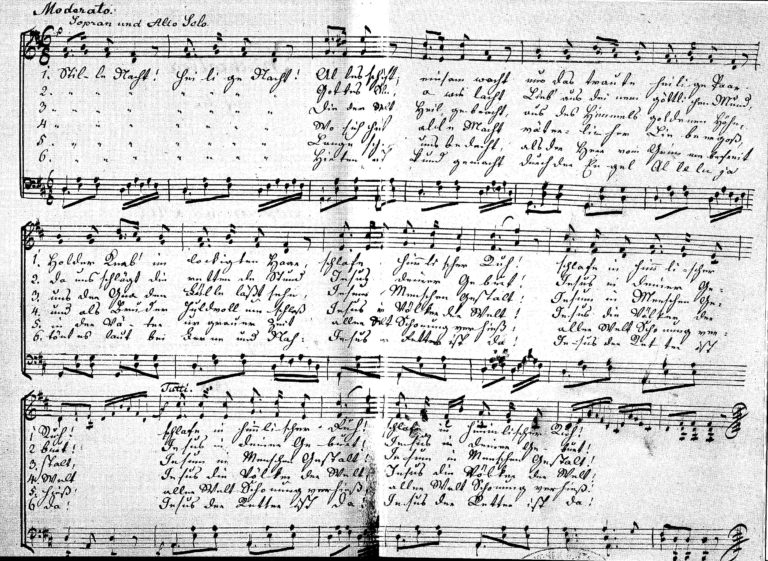 Moderato.
Sopran und Alto Solo
1. Stille Nacht! heilige Nacht! Alles schläft, einsam wacht nur das traute heilige Paar.
2. " " " " " " Gottes Sohn! o wie lacht Lieb aus deinem göttlichen Mund,
3. " " " " " " Die der Welt Heil gebracht, aus des Himmels goldenen Höhn,
4 " " " " " " Wo sich heut alle Macht väterlicher Liebe ergoß,
5. " " " " " " Lange schon uns bedacht, als der Herr vom Grimm befreit
6. " " " " " " Hirten erst kund gemacht durch der Engel Alleluja
1. Holder Knab' im lockigten Haar, schlafe in himmlischer Ruh! schlafe in himmlischer
2. da uns schlägt die rettende Stund Jesus in deiner Geburt! Jesus in deiner Ge-
3. uns der Gnaden Fülle läßt sehn, Jesum in Menschen Gestalt! Jesum in Menschen Ge-
4. und als Bruder huldvoll umschloß Jesus die Völker der Welt! Jesus die Völker der
5. in der Väter urgrauer Zeit aller Welt Schonung verhieß! aller Welt Schonung ver-
6. tönt es laut bei Ferne und Nah: Jesus der Retter ist da! Jesus der Retter ist
Tutti.
1 Ruh! schlafe in himmlischer Ruh! schlafe in himmlischer Ruh!
2 burt! Jesus in deiner Geburt! Jesus in deiner Geburt!
3. stalt, Jesum in Menschen Gestalt! Jesum in Menschen Gestalt!
4. Welt Jesus die Völker der Welt! Jesus die Völker der Welt!
5. hieß! aller Welt Schonung verhieß! aller Welt Schonung verhieß!
6 da! Jesus der Retter ist da! Jesus der Retter ist da!